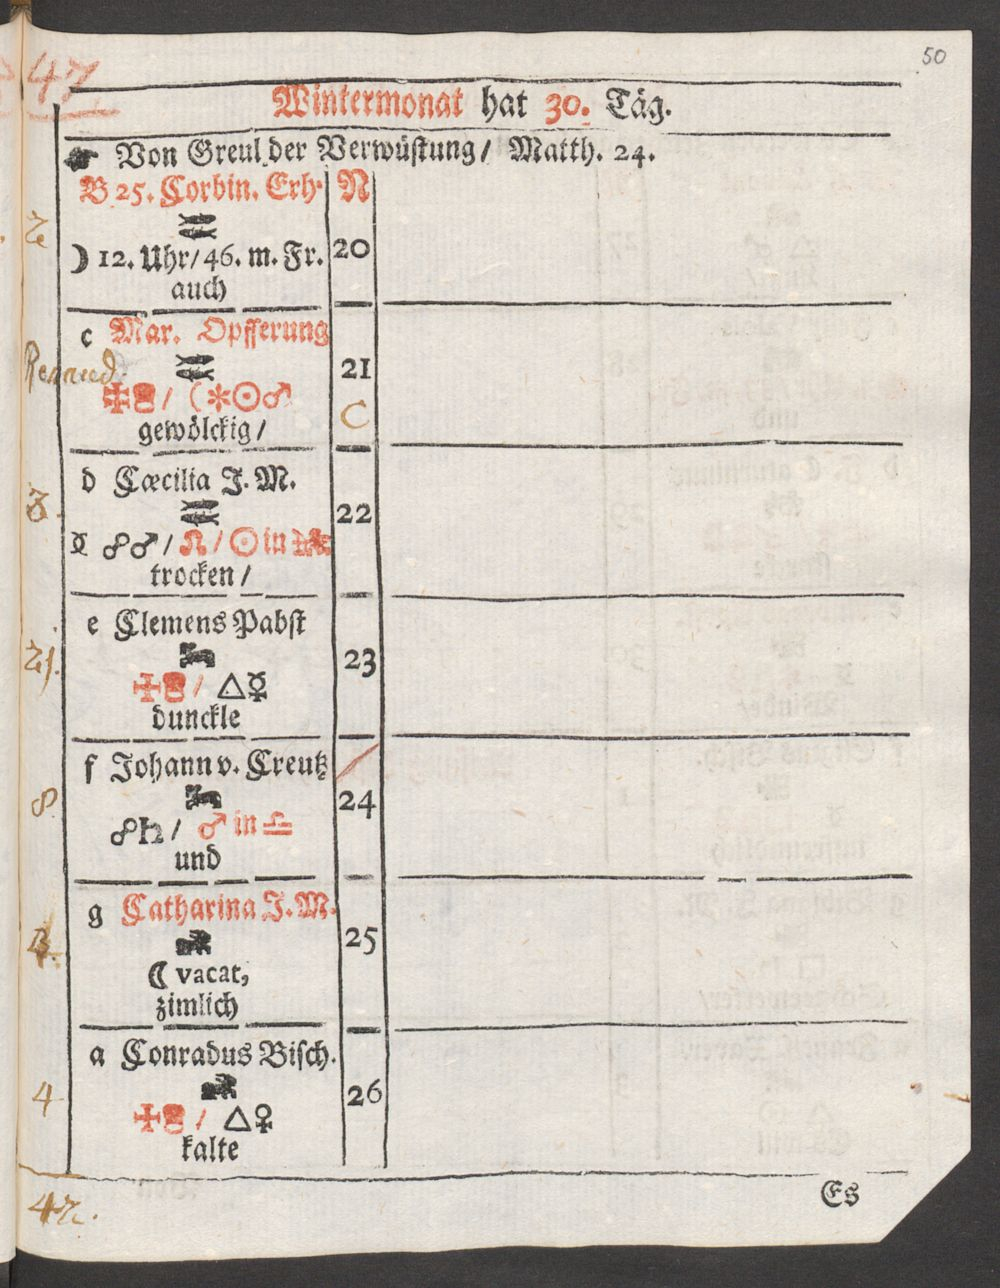 50
47
Wintermonat hat 30. Täg.
☛ Von Greul der Verwüstung / Matth. 24.
B 25. Corbin. Erh. N
♓
☽ 12. Uhr / 46. m. Fr. 20
auch
c Mar. Opfferung
♓ 21
/ ( ⚹☉♂
C
gewölckig /
d Cæcilia J. M.
♓ 22
☿ ☍♂ / ♌ / ☉ in
trocken /
e Clemens Pabst
23
/ △☿
dunckle
f Johann v. Creutz
24
☍♄ / ♂ in ♎
und
g Catharina J. M.
25
☾ vacat,
zimlich
a Conradus Bisch.
4 26
/ △♀
kalte
Es